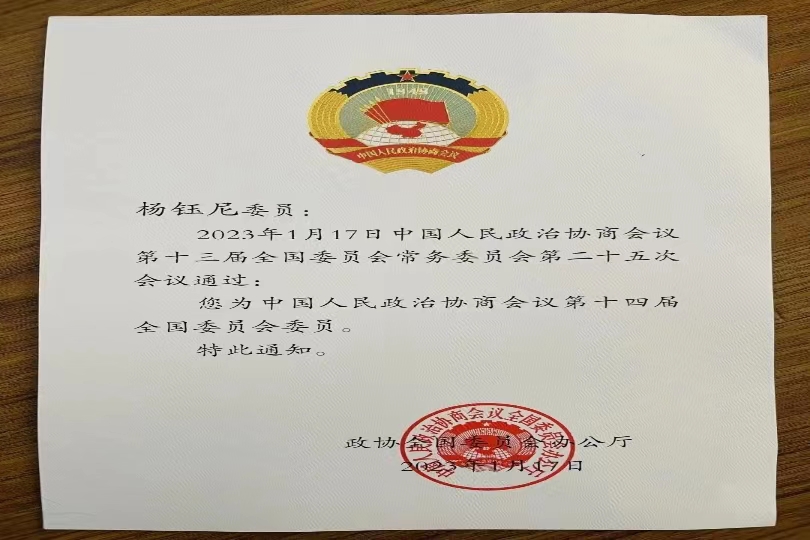 1949
中国人民政治协商会议
杨钰尼委员：
2023年1月17日中国人民政治协商会议
第十三届全国委员会常务委员会第二十五次
会议通过：
您为中国人民政治协商会议第十四届
全国委员会委员。
特此通知。
中国人民政治协商会议全国委员会办公厅
政协全国委员会办公厅
2023年1月17日